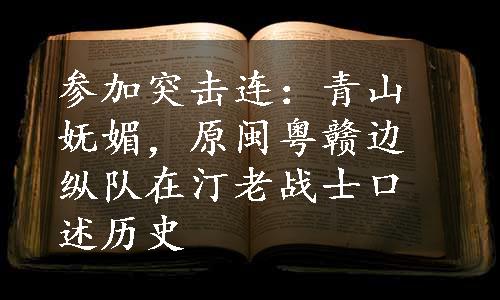 参加突击连：青山
妩媚，原闽粤赣边
纵队在汀老战士口
述历史